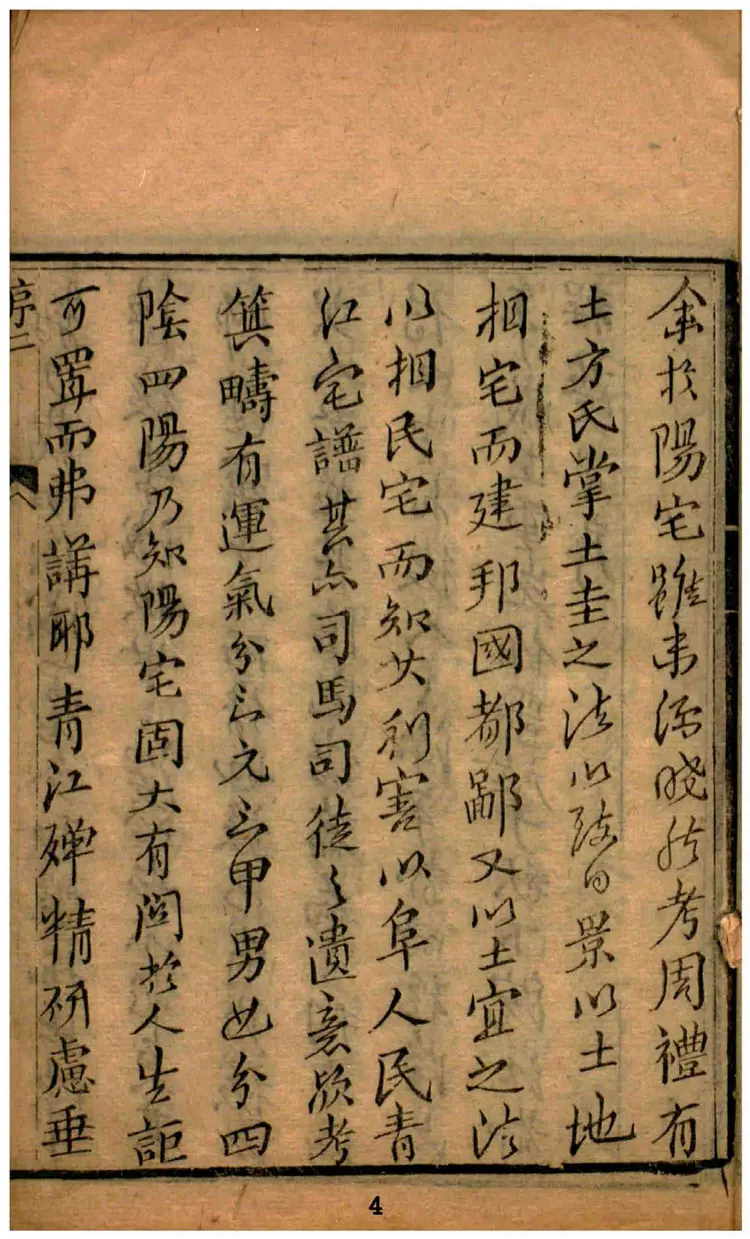 余扵陽宅雖未深曉然考周禮有
土方氏掌土圭之法以致日景以土地
相宅而建邦國都鄙又以土宜之法
以相民宅而知其利害以阜人民青
江宅譜其亦司馬司徒之遺意歟考
箕疇有運氣分三元三甲男女分四
陰四陽乃知陽宅固大有関扵人生詎
可置而弗講耶青江殫精研慮垂
序二
4